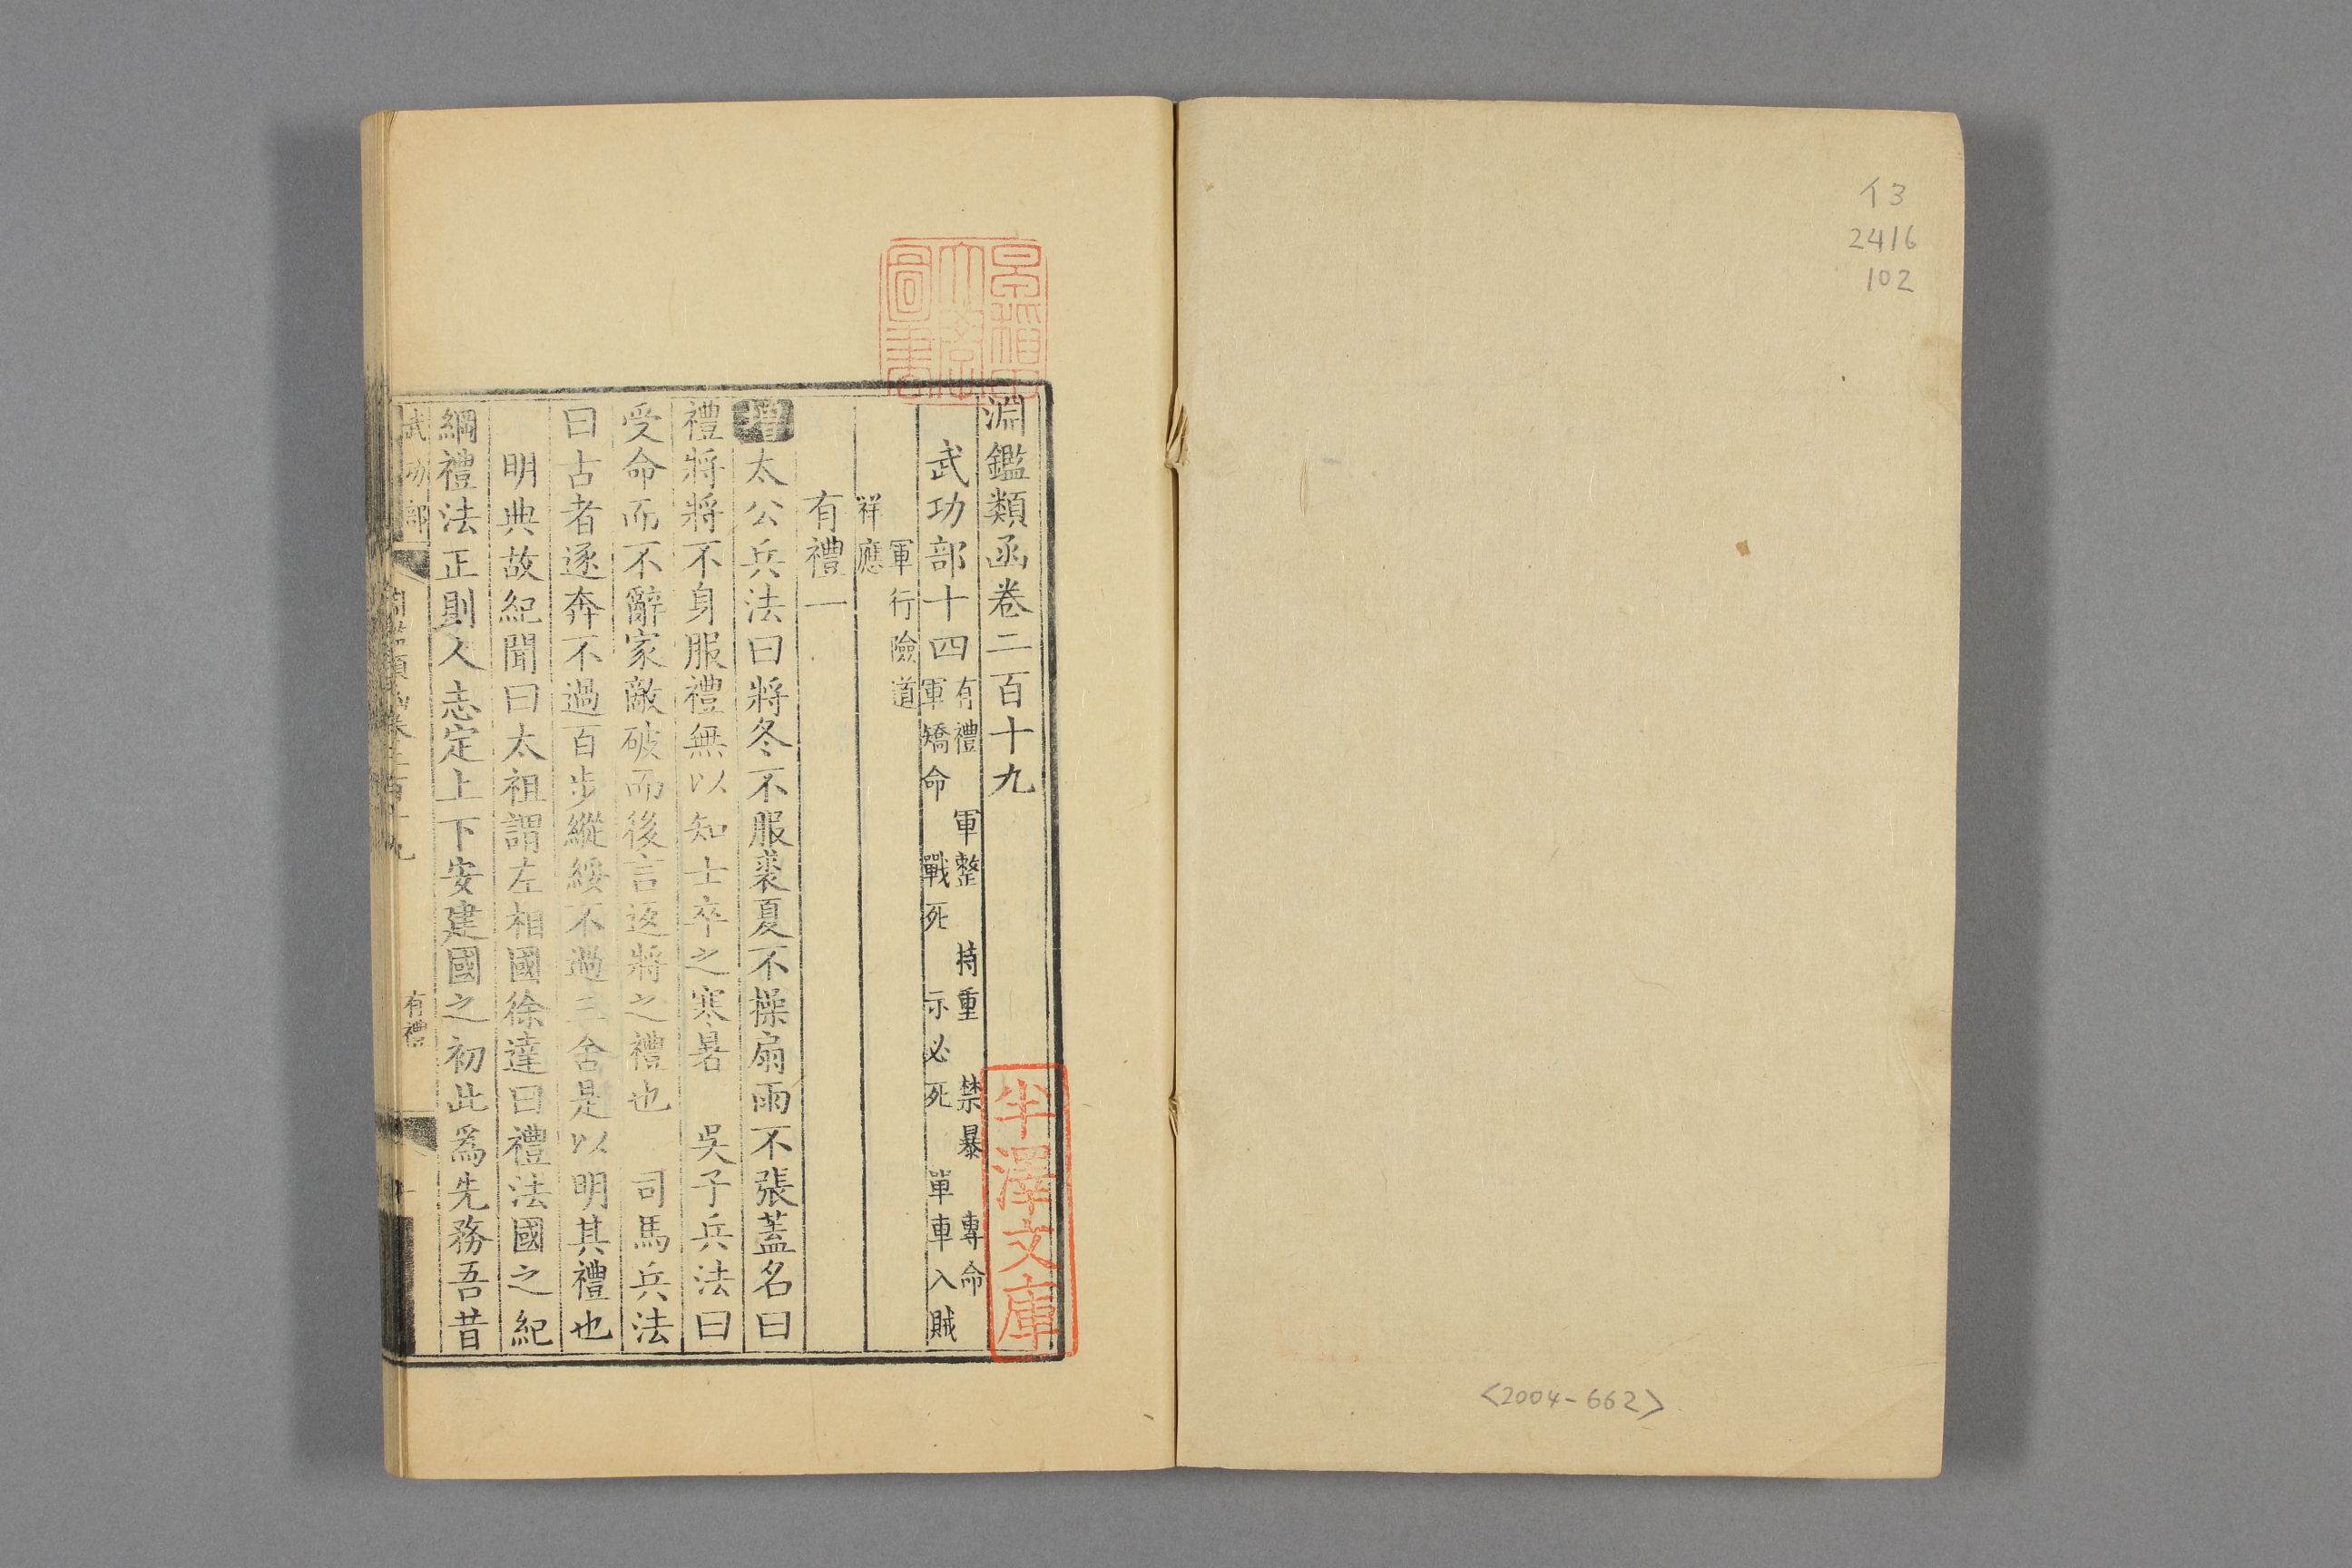 イ3
2416
102
<2004-662>
早稲田大学図書
淵鑑類函卷二百十九
半澤文庫
武功部十四
有禮 軍整 持重 禁暴 專命
軍矯命 戰死 示必死 單車入賊
軍行險道
祥應
有禮一
增太公兵法曰將冬不服裘夏不操扇雨不張蓋名曰
禮將將不身服禮無以知士卒之寒暑 吳子兵法曰
受命而不辭家敵破而後言返將之禮也 司馬兵法
曰古者逐奔不過百步縱綏不過三舍是以明其禮也
明典故紀聞曰太祖謂左相國徐達曰禮法國之紀
綱禮法正則人志定上下安建國之初此爲先務吾昔
武功部
淵鑑類函卷二百十九
有禮
一